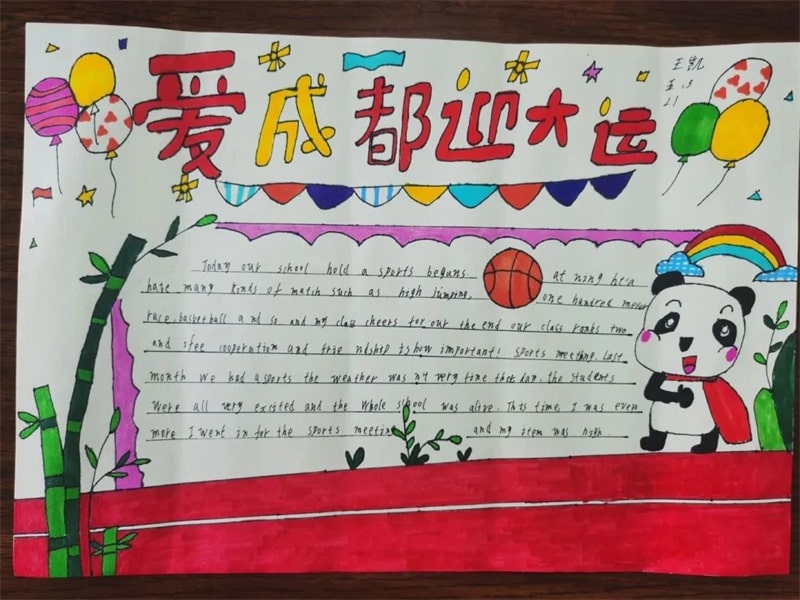 爱成都迎大运
王凯
21
Today our school hold a sports beguns. at ning he a
have many kinds of match such as high jumping, one hundred meter
race, basketball and so and my class cheers for our the end our class ranks two
and ifee cooperation and frie ndship is how important! sports meeting. Last
month we had a sports the weather was very fine that day. the students
were all very excited and the whole school was alive. This time, I was even
more I went in for the sports meeting and my item was high.